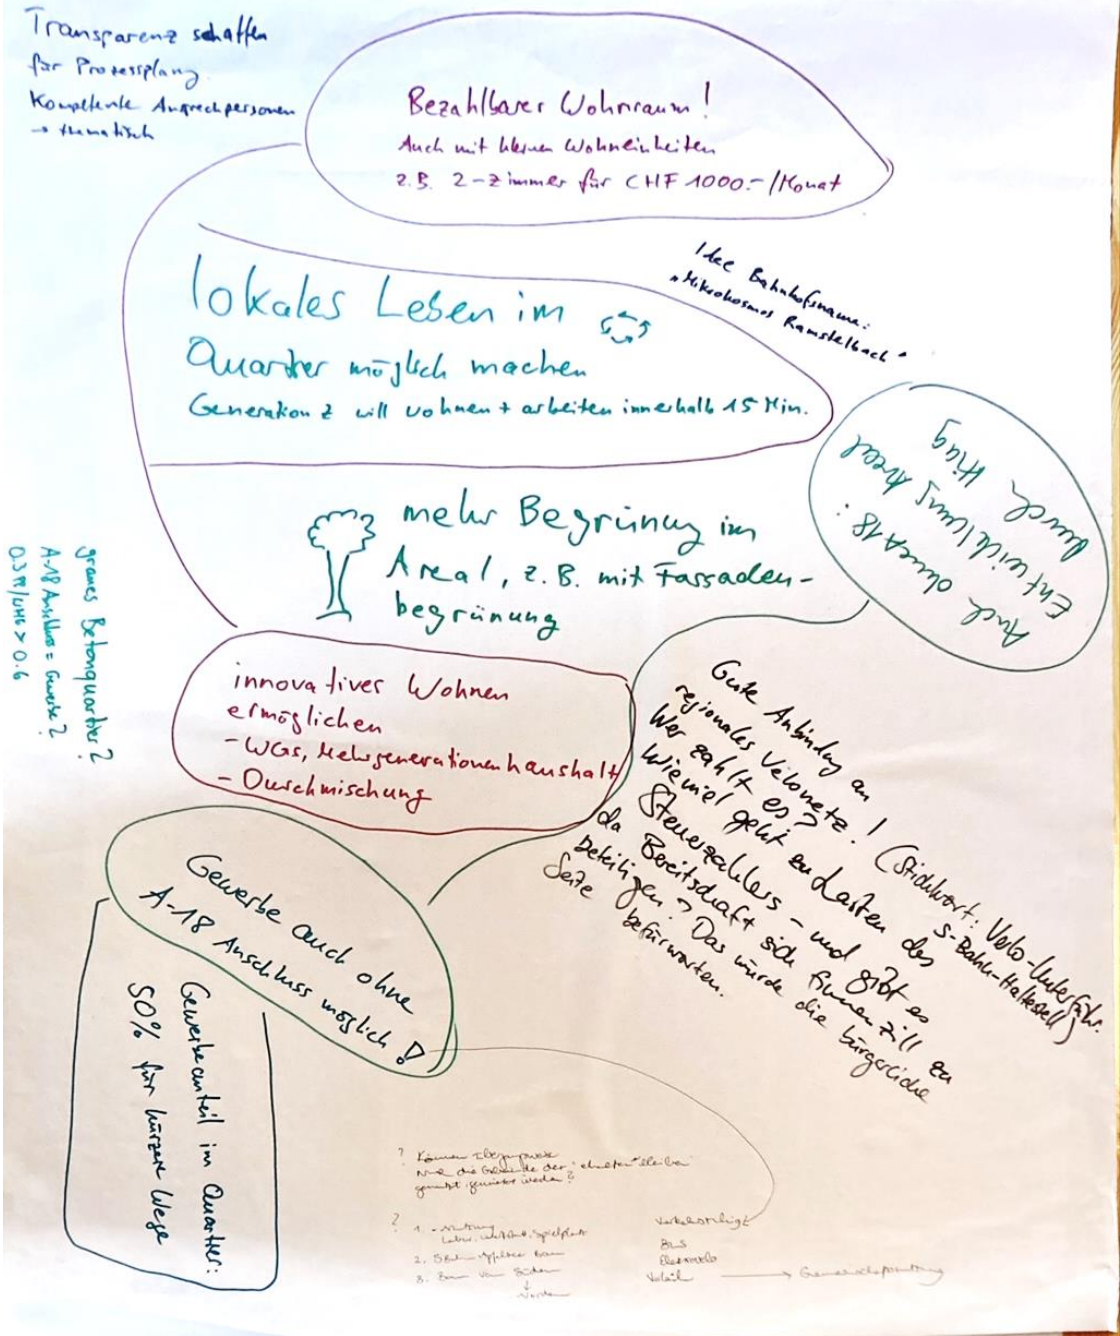 Transparenz schaffen
für Prozessplang.
Kompetente Ansprechpersonen
→ thematisch
Bezahlbarer Wohnraum!
Auch mit kleinen Wohneinheiten
z.B. 2-Zimmer für CHF 1000.-/Monat
Idee Bahnhofsname:
"Mikrokosmos Ramstelbach"
lokales Leben im
Quartier möglich machen
Generation Z will wohnen + arbeiten innerhalb 15 Min.
Auch ohne A18:
Entwicklung Areal
durch Hiag
mehr Begrünung im
Areal, z.B. mit Fassaden-
begrünung
graues Betonquartier?
A-18 Anschluss = Gewerbe?
> 0.6
innovatives Wohnen
ermöglichen
- WGs, Mehrgenerationenhaushalt
- Durchmischung
Gute Anbindung an
regionales Velonetz! (Stichwort: Velo-Unterführ.
S-Bahn-Haltestell)
Wer zahlt es?
Wieviel geht zu Lasten des
Steuerzahlers - und gibt es
da Bereitschaft sich finanziell zu
beteiligen? Das würde die bürgerliche
Seite befürworten.
Gewerbe auch ohne
A-18 Anschluss möglich!
Gewerbeanteil im Quartier:
50% für kürzere Wege
? Können
die Gebäude der erhalten bleiben
genutzt werden?
?
1. - Nutzung
Spielplatz
2.
3. Bau von Süden
↓
Norden
Bus
Elektrovelo
→